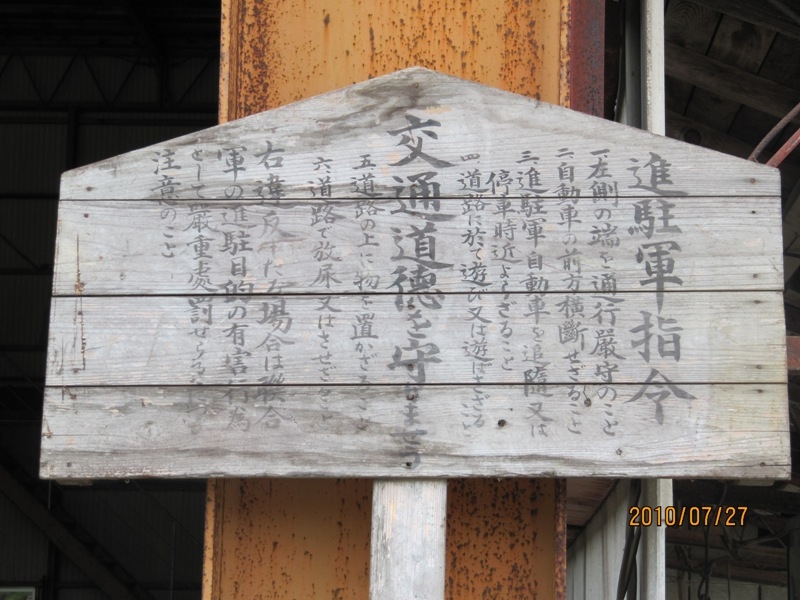 進駐軍指令
一、左側の端を通行嚴守のこと
二、自動車の前方横斷せざること
三、進駐軍自動車を追隨又は
停車時近よらざること
四、道路に於て遊び又は遊ばさざること
交通道德を守りませう
五、道路の上に物を置かざること
六、道路で放尿又はさせざること
右違反したる場合は聯合
軍の進駐目的の有害行為
として嚴重處罰せらるる
注意のこと
2010/07/27